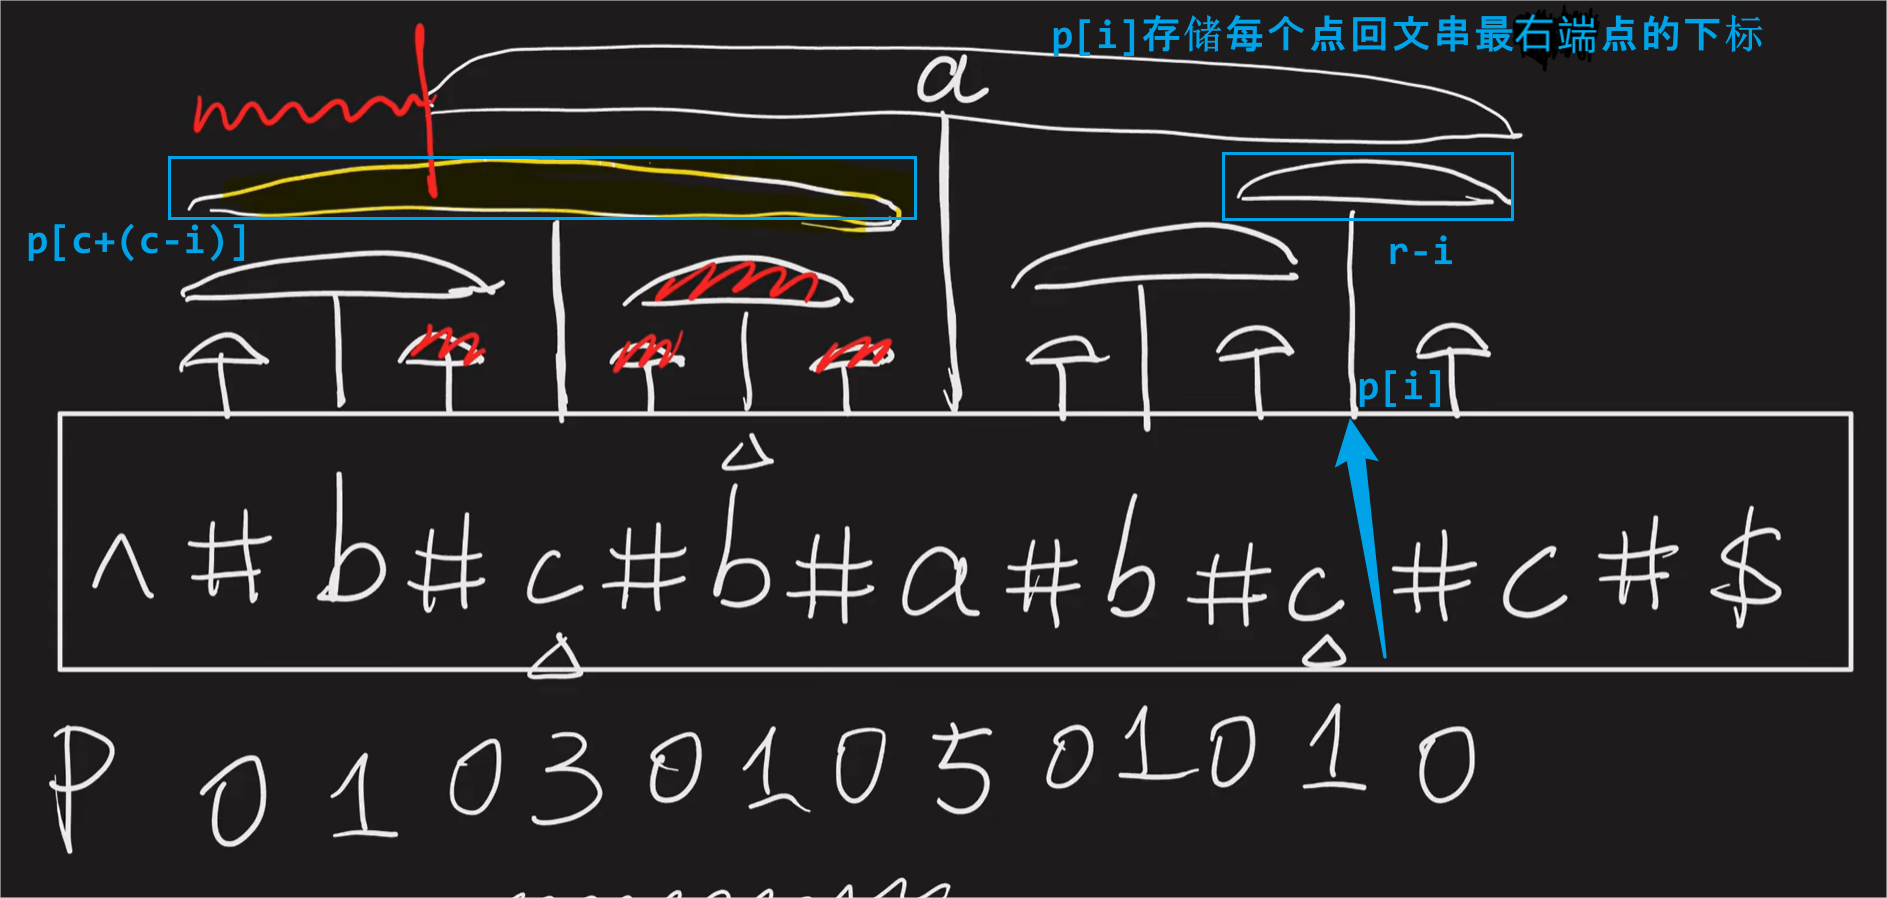 p[i]存储每个点回文串最右端点的下标
a
p[c+(c-i)]
r-i
p[i]
^ # b # c # b # a # b # c # c # $
P 0 1 0 3 0 1 0 5 0 1 0 1 0